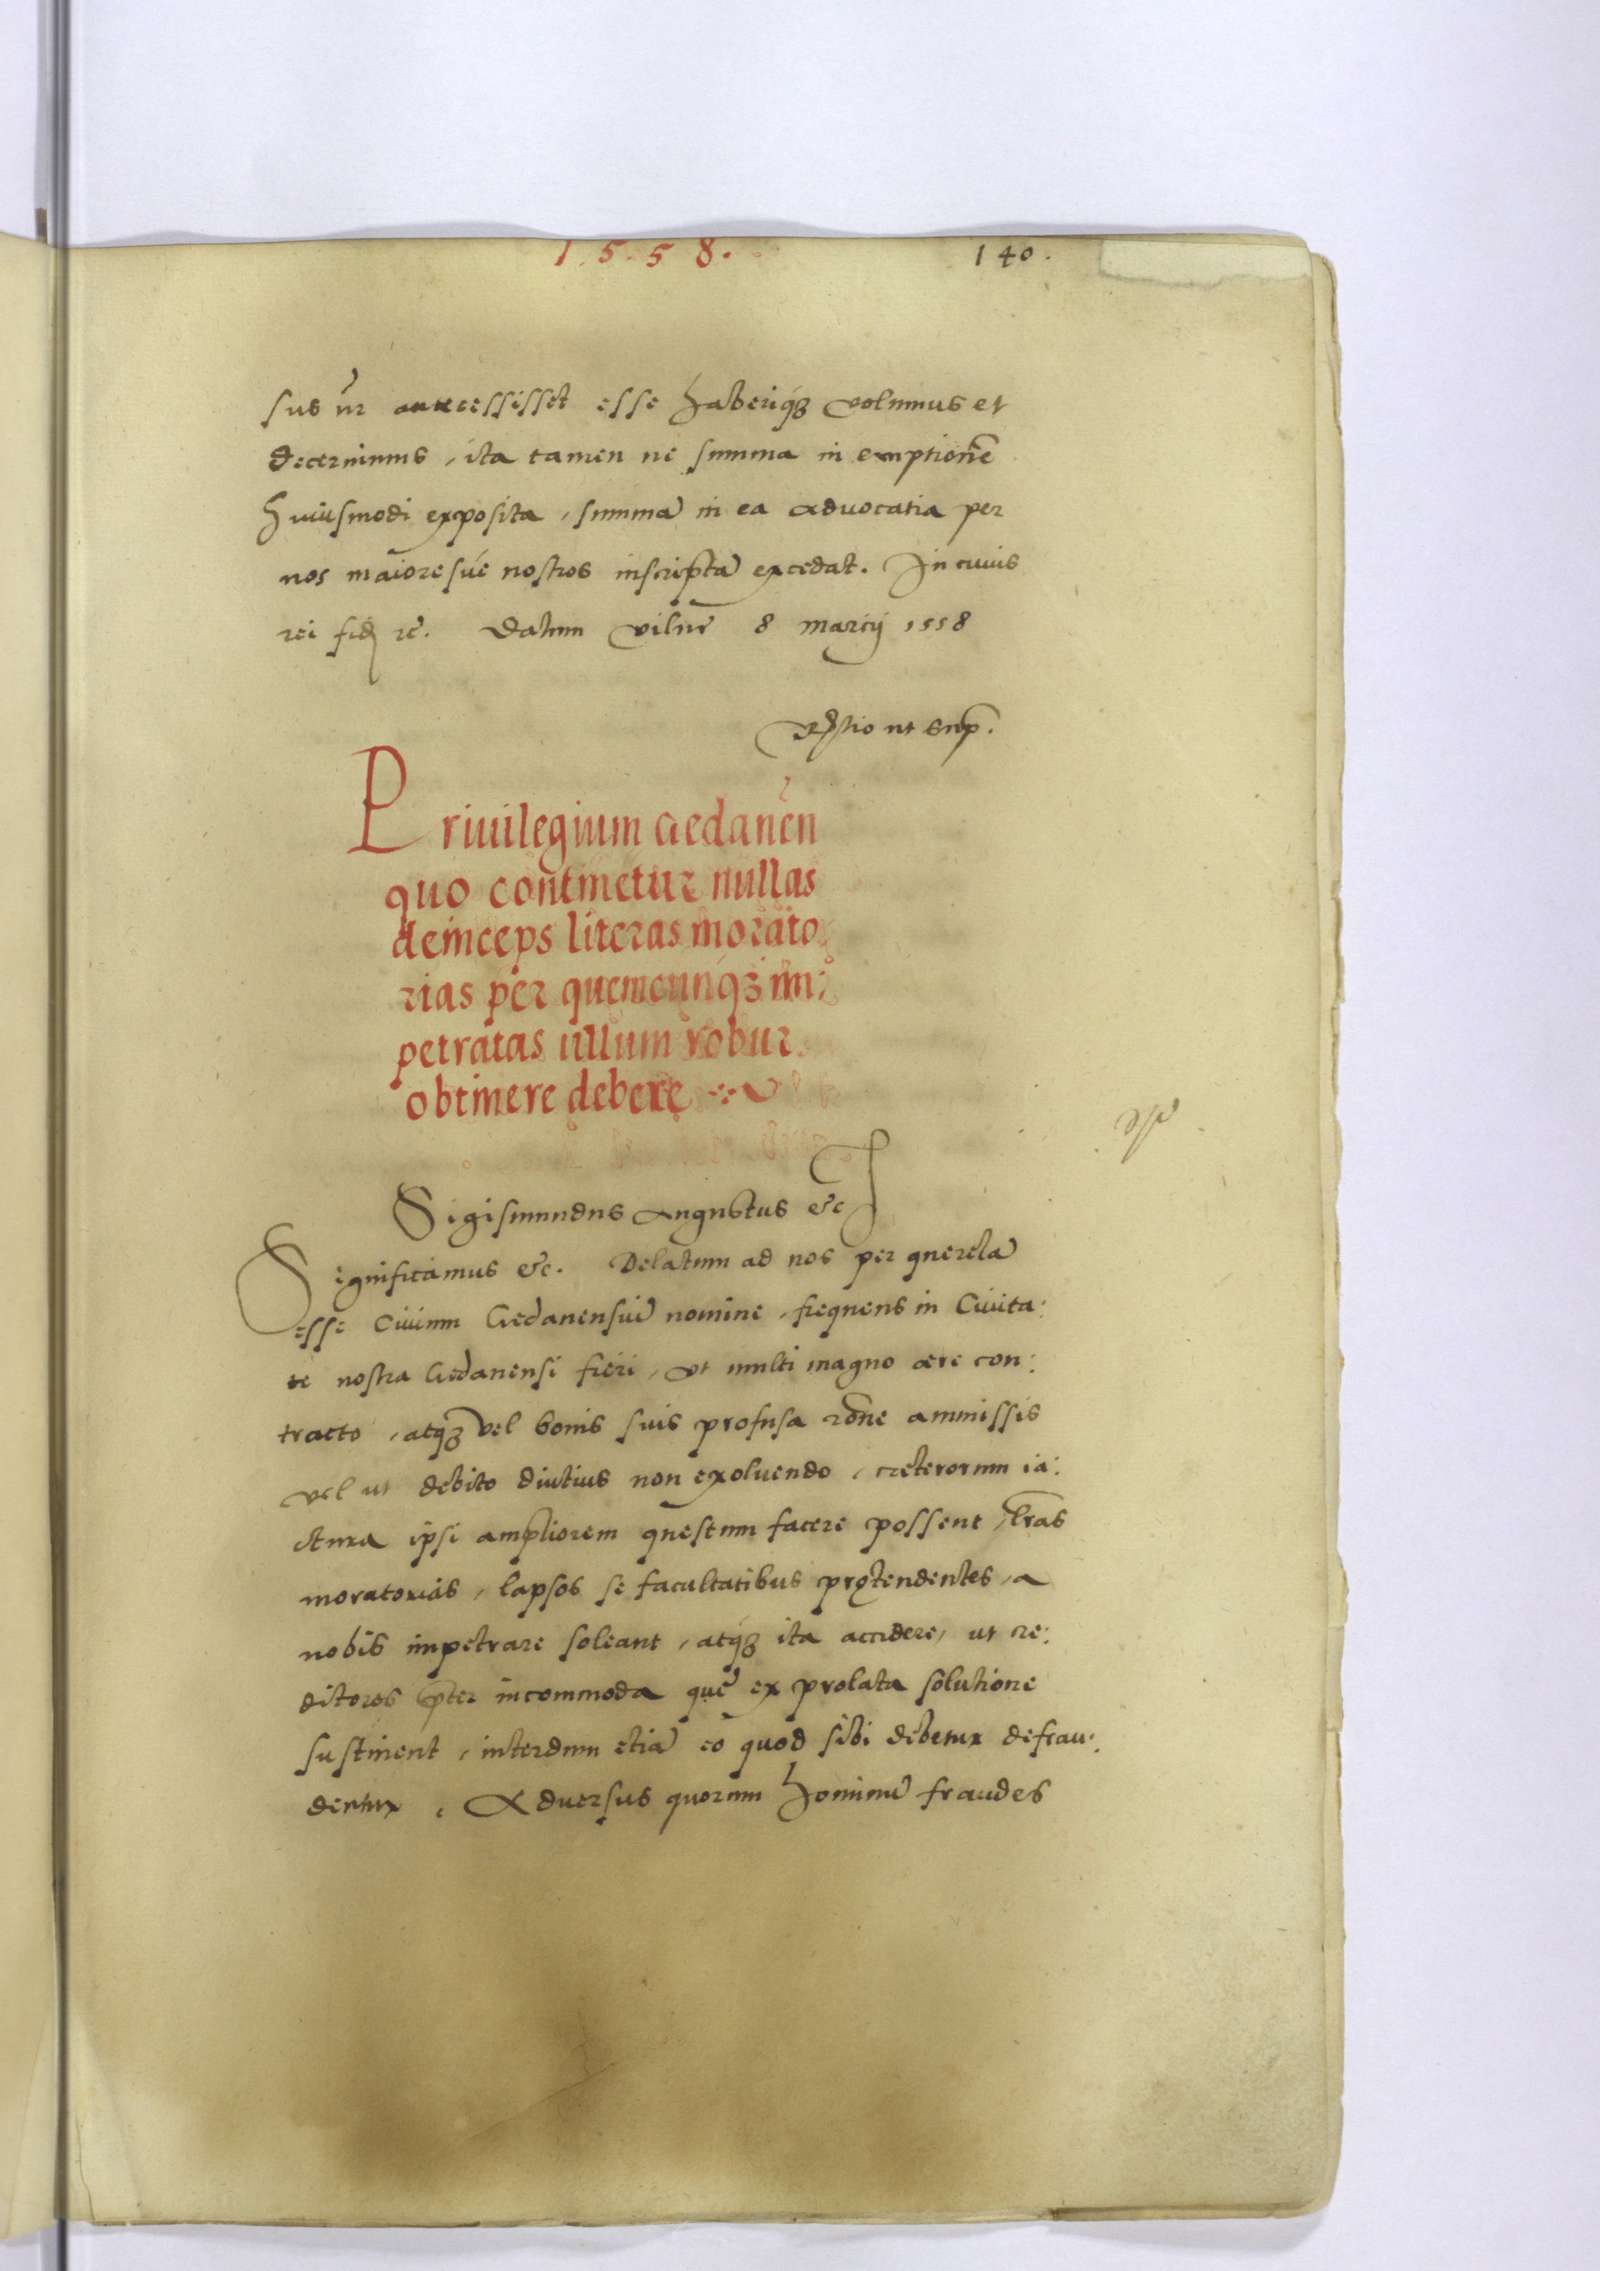 1.5.5.8.
140.
sus nr̃ antecessisset esse haberiq́ꝫ volumus et
decernimus, ita tamen ne summa in emptionẽ
huiusmodi exposita, summã in ea aduocatia per
nos maioresúe nostros inscriptã excedat. In cuius
rei fidẽ rc̃. Datum Vilnę 8 marcij 1558
R̃stio ut supᷓ.
Priuilegium Gedanẽn
quo continetur nullas
deinceps literas morato
rias per quemcunq́ꝫ im:
petratas ullum robur
obtinere debere
Sigismundus Augustus &c
Significamus &c. Delatum ad nos per querelã
esse Ciuium Gedanensiũ nomine, frequens in Ciuita:
te nostra Gedanensi fieri, vt multi magno aere con:
tracto, atq́ꝫ vel bonis suis profusa rõne ammissis
vel ut debito diutius non exoluendo, cæterorum ia:
ctura ipsi ampliorem questum facere possent, lr̃as
moratorias, lapsos se facultatibus prętendentes, a
nobis impetrare soleant, atq́ꝫ ita accidere, ut cre:
ditores p̃ter incommoda quę ex prolata solutione
sustinent, interdum etiã eo quod sibi debetur defrau:
dentur, Aduersus quorum hominũ fraudes